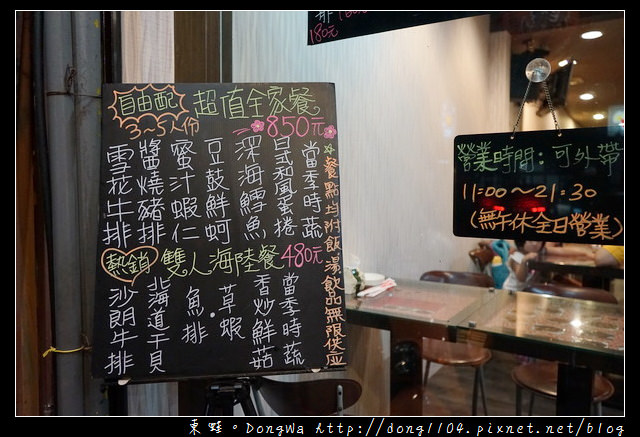 自由配
3~5人份
超值全家餐
850元
雪花牛排
醬燒豬排
蜜汁蝦仁
豆鼓鮮蚵
深海鱈魚
日式和風蛋捲
當季時蔬
☆餐點均附飲湯飲品無限供应
熱銷
雙人海陸餐
480元
沙朗牛排
北海道干貝
魚排·草蝦
香炒鮮菇
當季時蔬
排
180元
營業時間:可外帶
11:00~21:30
(無午休全日營業)
東蛙。DongWa http://dong1104.pixnet.net/blog